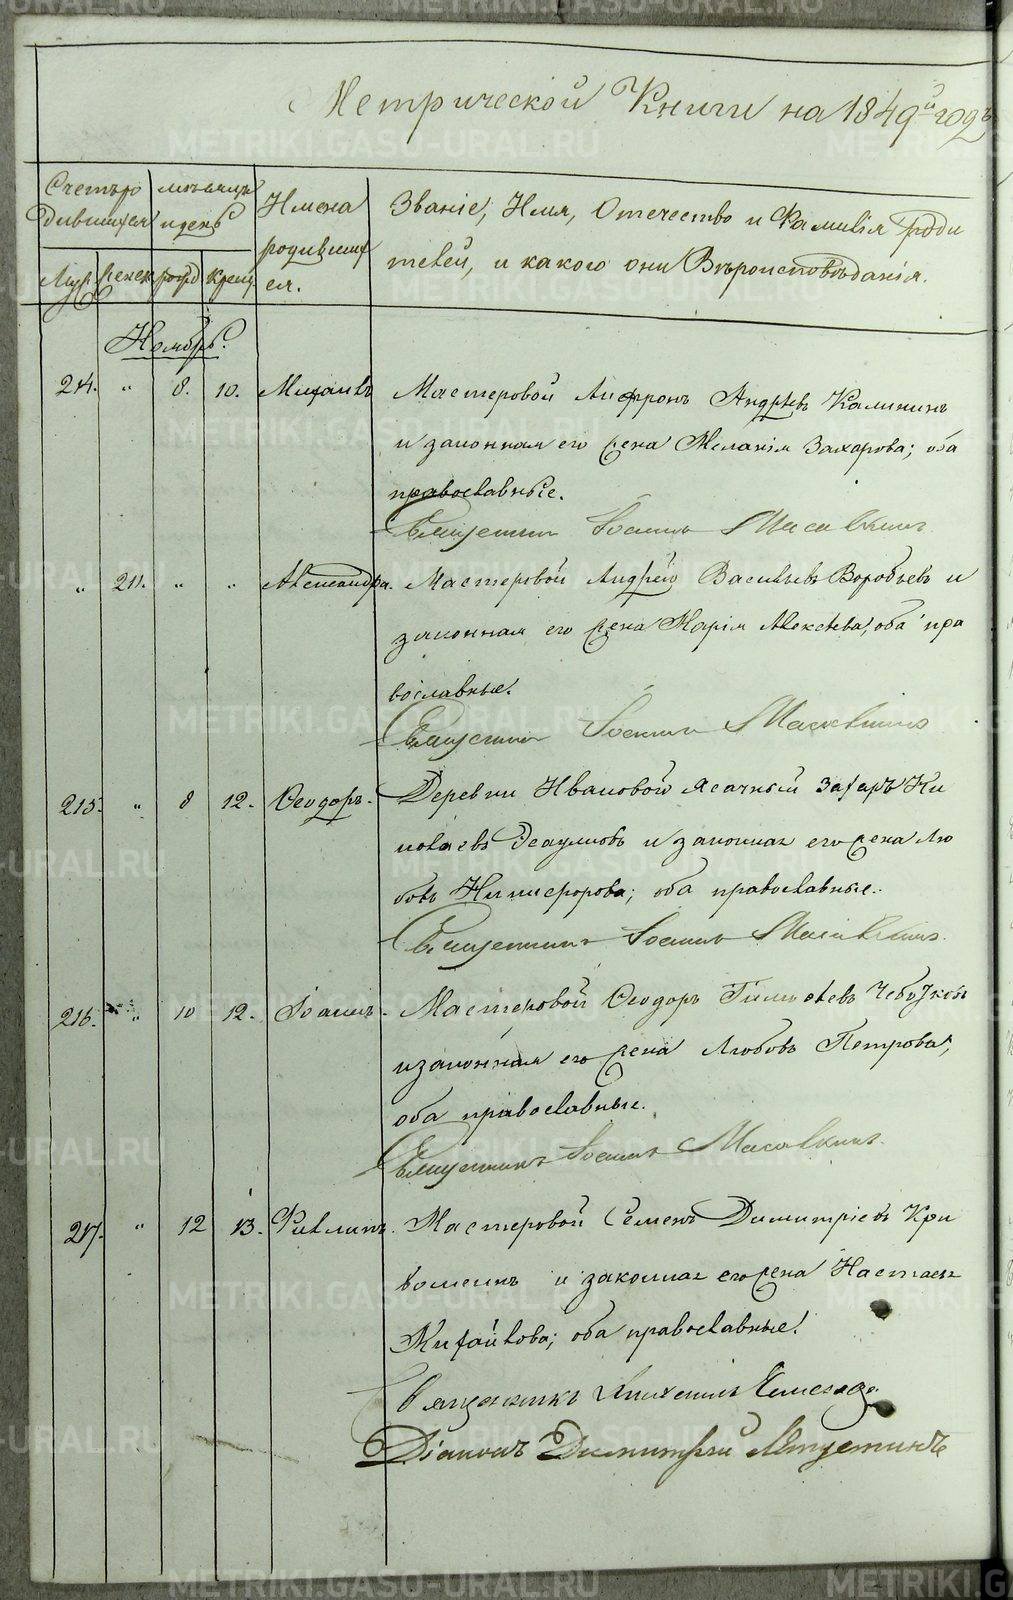 Метрической Книги на 1849й годъ
Счетъ ро
дившихся
мѣсяцъ
и день
Имена
родивших
ся.
Званіе, Имя, Отечество и Фамилія роди
телей, и какого они Вѣроисповѣданія.
Муж. женск рожд крещ
Ноябрь.
214. " 8. 10. Михаилъ Мастеровой Андреевъ Калининъ
и законная его жена Меланія Захарова; оба
православные.
Священникъ Іоаннъ
" 211. " " Александра. Мастеровой Андрей Васильевъ Воробьевъ и
законная его жена Марія Алексѣева, оба пра
вославные.
Священникъ Іоаннъ
215. " 8 12. Ѳеодоръ. Деревни Ивановой Ясачный Захаръ Ни
колаевъ и законная его жена Лю
бовь Никифорова; оба православные.
Священникъ Іоаннъ
216. " 10 12. Іоаннъ. Мастеровой Ѳеодоръ
и законная его жена Любовь Петрова;
оба православные.
Священникъ Іоаннъ
217. " 12 13. Филиппъ. Мастеровой Семенъ Димитріевъ Кри
и законная его жена Настасья
Михайлова; оба православные.
Священникъ
Діаконъ Димитрій
METRIKI.GASO-URAL.RU